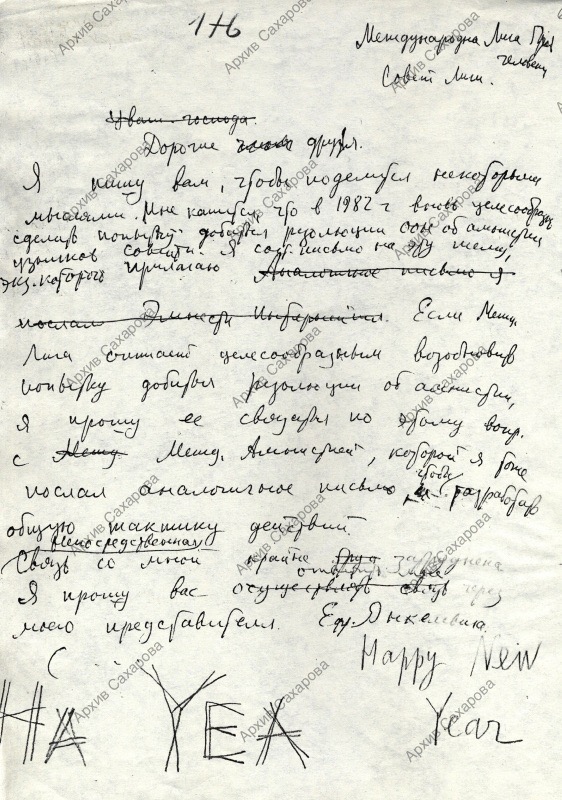 1 яб
Международна Лига Прав
человека
Совет Лиги.
Уваж. господа.
Дорогие друзья.
Я пишу вам, чтобы поделиться некоторыми
мыслями. Мне кажется, что в 1982 г вновь целесообразно
сделать попытку добиться резолюции ООН об амнистии
узников совести. Я сост. письмо на эту тему,
экз. которого прилагаю Аналогичное письмо я
послал Эмнести Интернейшнл. Если Межд.
Лига считает целесообразным возобновить
попытку добиться резолюции об амнистии,
я прошу ее связаться по этому вопр.
с Межд Межд. Амнистией, которой я тоже
послал аналогичное письмо чтобы разработать
общую тактику действий.
Непосредственная
Связь со мной крайне затруднена
Я прошу вас осуществлять связь через
моего представителя. Ефр. Янкелевича
Happy New
Year
HA YEA
Архив Сахарова